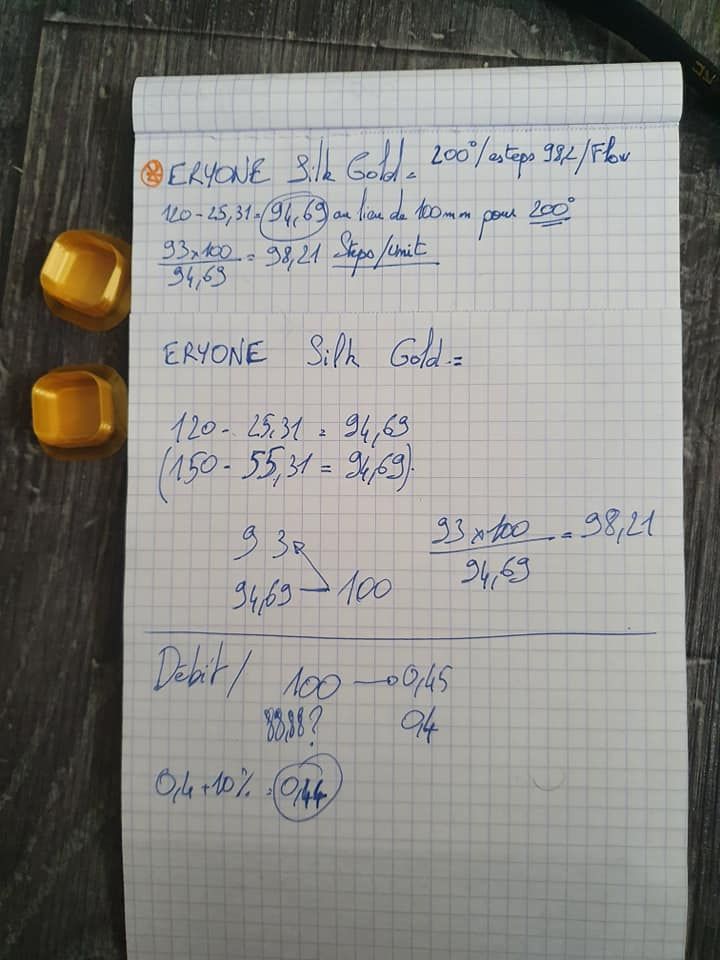 ERYONE Silk Gold = 200°/esteps 98,2/Flow
120 - 25,31 = 94,69 au lieu de 100mm pour 200°
93 x 100
94,69
= 98,21 Steps/unit
ERYONE Silk Gold =
120 - 25,31 = 94,69
(150 - 55,31 = 94,69).
93
94,69 → 100
93 x 100
94,69
= 98,21
Débit/ 100 → 0,45
88,88? 0,4
0,4 + 10% = 0,44